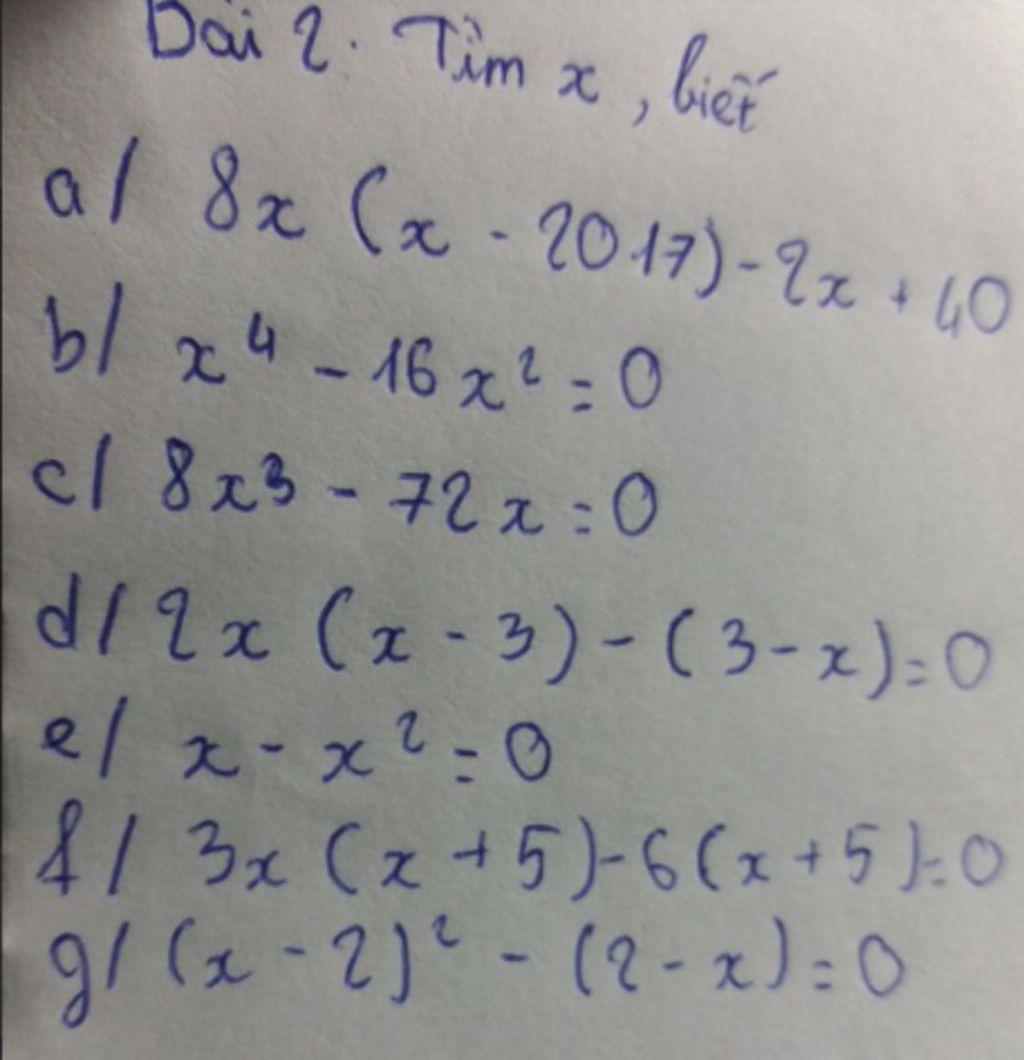 Bài 2. Tìm x, biết
a/ 8x (x - 2017) - 2x + 40
b/ x⁴ - 16x² = 0
c/ 8x³ - 72x = 0
d/ 2x (x - 3) - (3 - x) = 0
e/ x - x² = 0
f/ 3x (x + 5) - 6(x + 5) = 0
g/ (x - 2)² - (2 - x) = 0